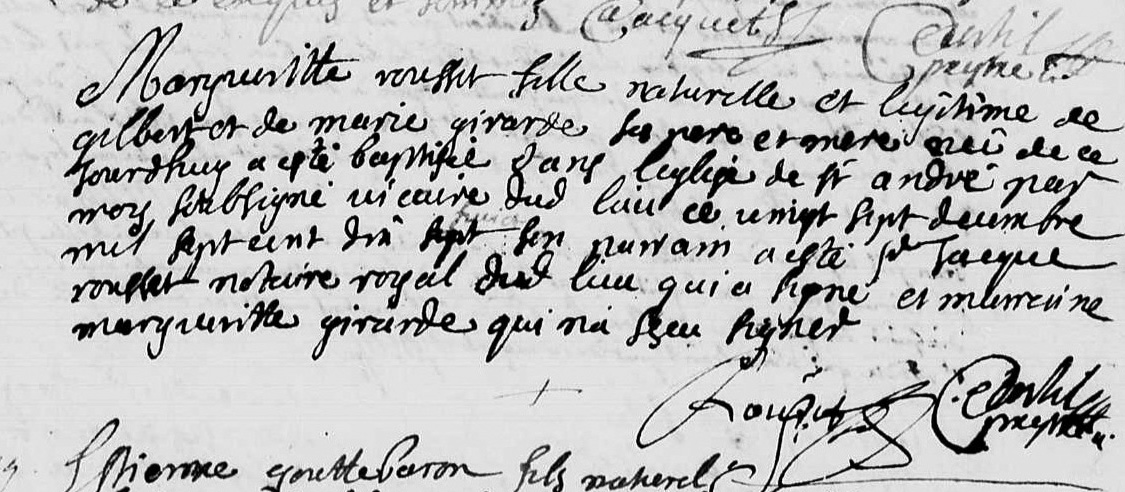 de ce et
Jacquet
Margueritte rousset fille naturelle et legitime de
gilbert et de marie girarde ses pere et mere née de ce
jourdhuy a esté baptisée dans leglise de st andré par
moy soubsigné vicaire dud lieu ce vingt sept decembre
mil sept cent dix sept son parrain a esté sr Jacque
rousset notaire royal dud lieu qui a signé et marraine
margueritte girarde qui na sceu signer
Rousset
Estienne gouttebaron fils naturel